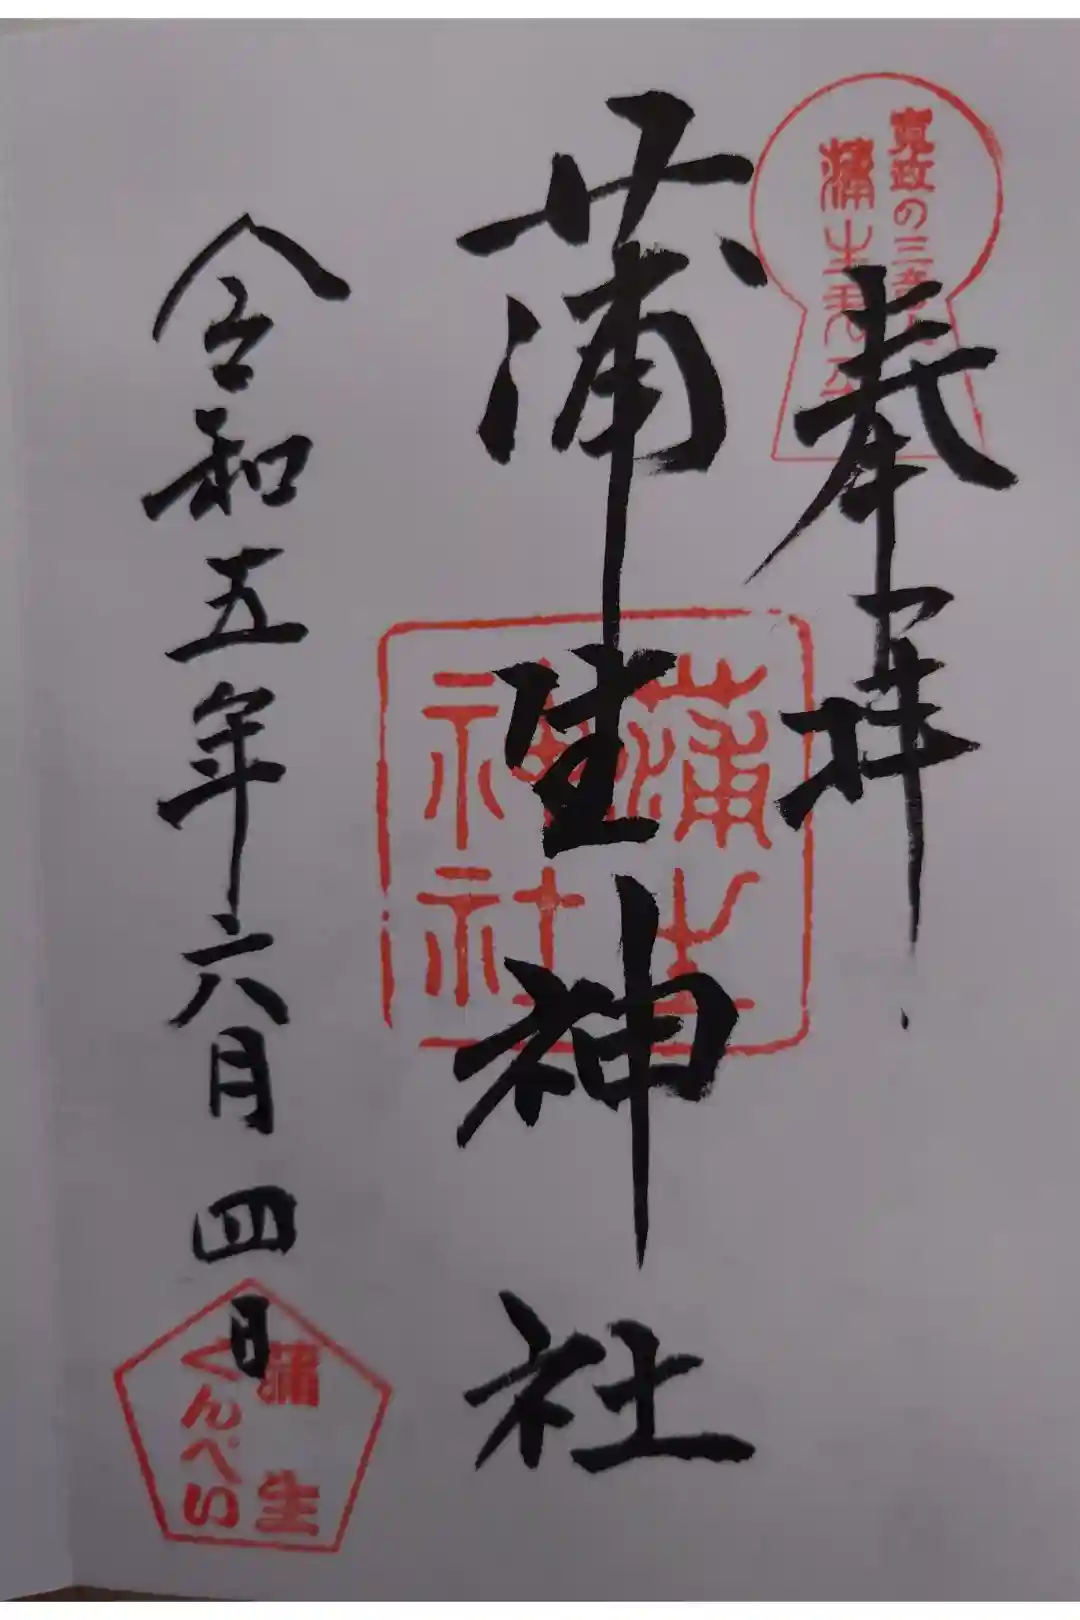 寛政の三奇人
蒲生君平
奉拝
蒲生神社
蒲生
神社
令和五年六月四日
蒲生
くんぺい